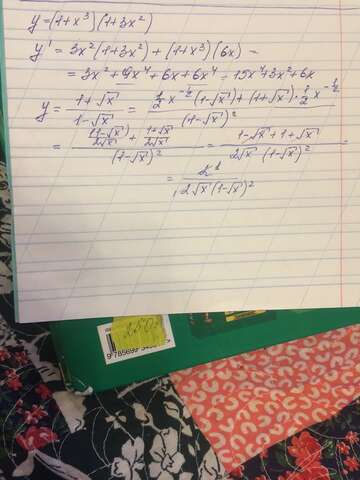 y=(1+x³)(1+3x²)
y' = 3x²(1+3x²) + (1+x³)(6x) =
= 3x² + 9x⁴ + 6x + 6x⁴ = 15x⁴+3x²+6x
y = (1+√x)/(1-√x) = (½ x^(-½) (1-√x) + (1+√x) · ½ x^(-½))/(1-√x)²
= ((1-√x)/(2√x) + (1+√x)/(2√x))/(1-√x)² = (1-√x+1+√x)/(2√x (1-√x)²) =
= 1/(2√x(1-√x)²)
250